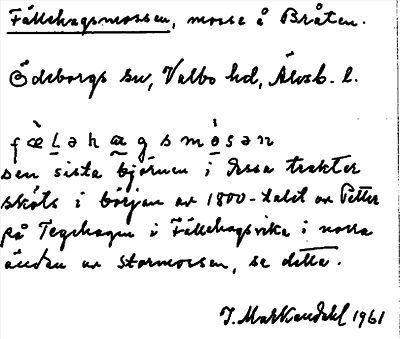 Fällehagsmossen, mosse å Bråten.
Ödeborgs sn, Valbo hd, Älvsb. l.
fæ̀Ləhægsmòsən
den sista björnen i dessa trakter
sköts i början av 1800-talet av Petter
på Tegehagen i Fällehagsvika i norra
änden av Stormossen, se detta.
J. Markendahl 1961